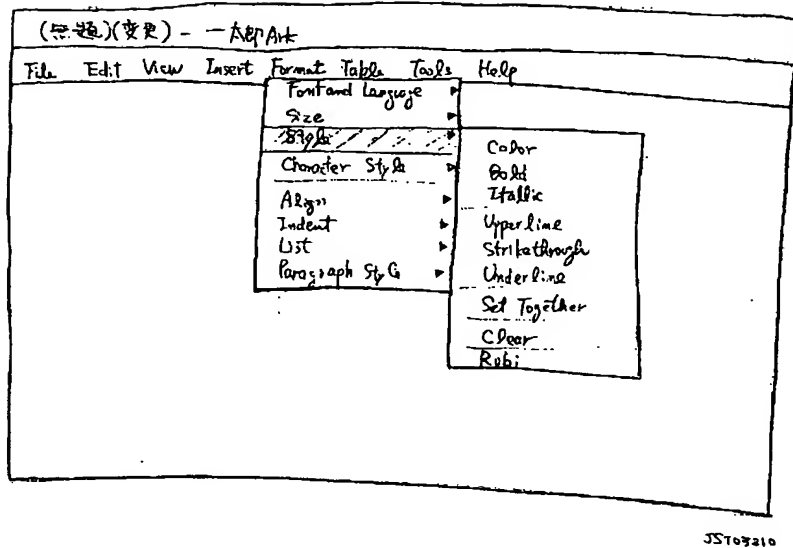 (無題)(変更) - 一太郎Ark
File Edit View Insert Format Table Tools Help
Font and Language
Size
Style
Character Style
Align
Indent
List
Paragraph Style
Color
Bold
Itallic
Upperline
Strikethrough
Underline
Set Together
Clear
Rubi
JST03210